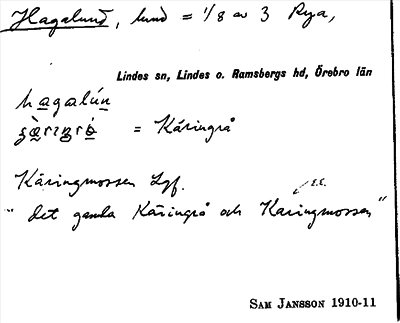 Hagalund, lund = 1/8 av 3 Rya,
Lindes sn, Lindes o. Ramsbergs hd, Örebro län
hagalún
= Käringrå
Käringmossen Lgf.
"det gamla Käringrå och Karingmossen"
SAM JANSSON 1910-11